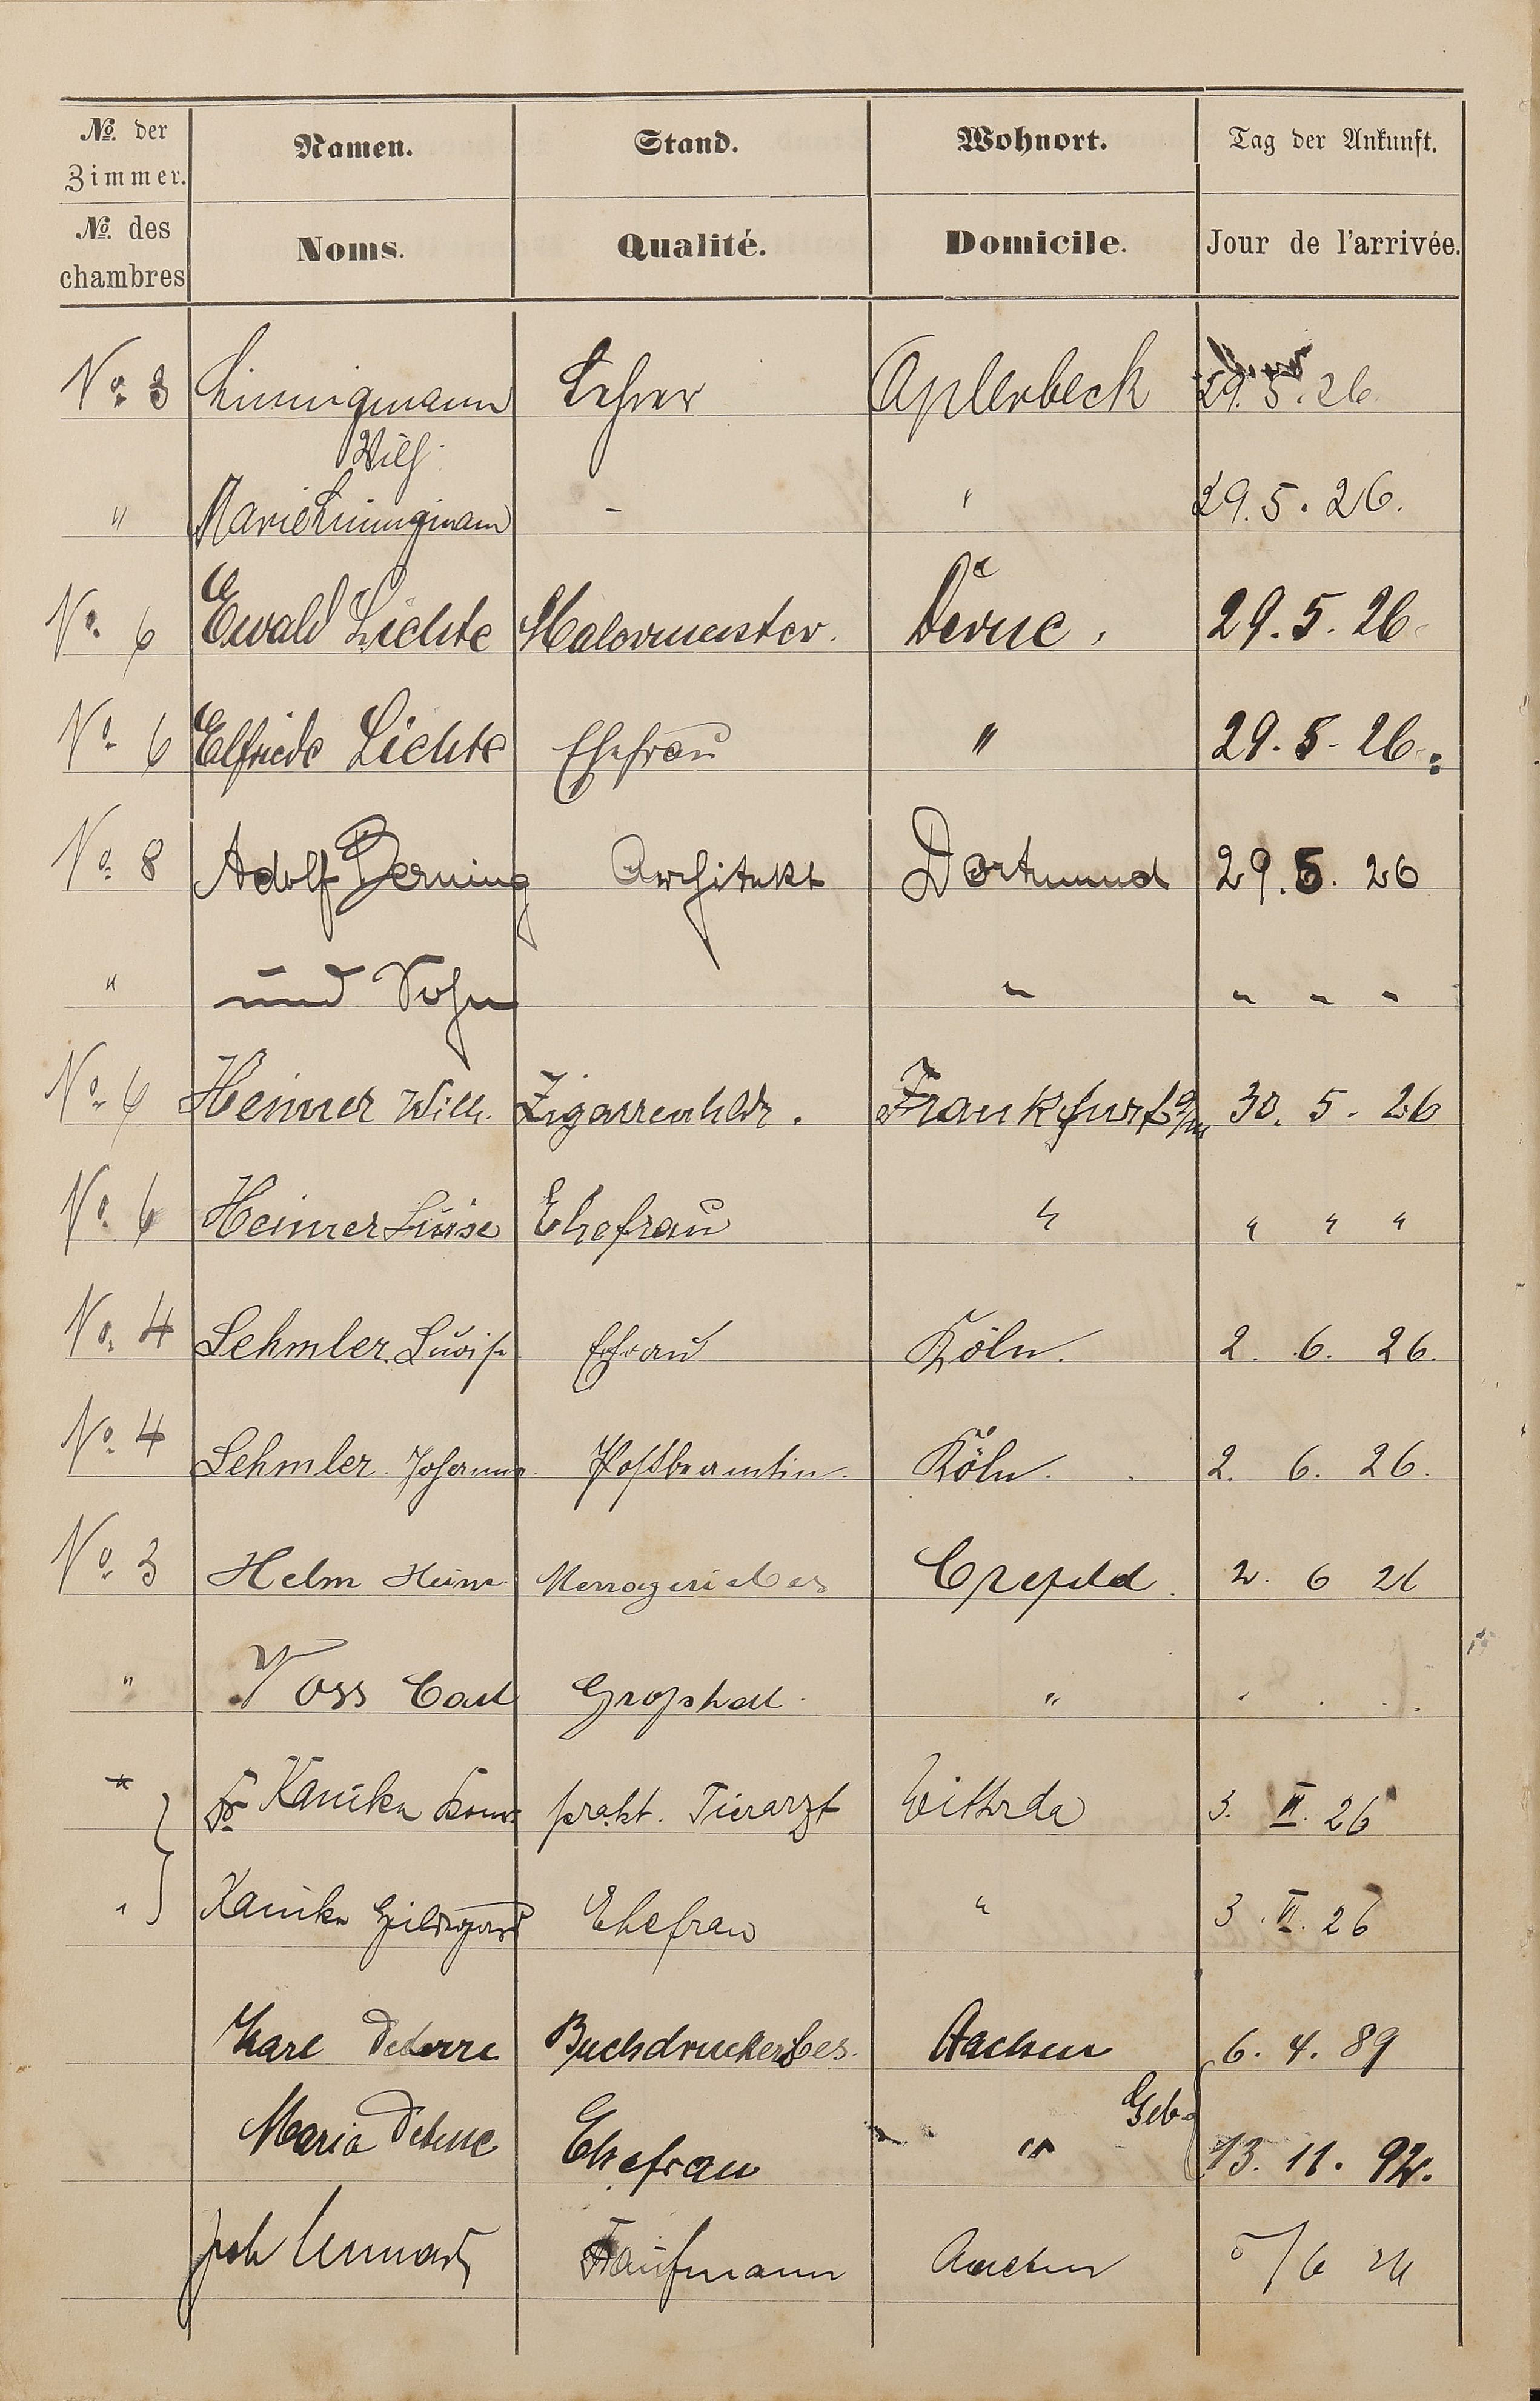 No. der Zimmer. Namen. Stand. Wohnort. Tag der Ankunft.
No. des chambres Noms. Qualité. Domicile. Jour de l'arrivée.
No. 3 Lehrer Aplerbeck 29.5.26.
Wilh.
" Marie - " 29.5.26.
No. 6 Ewald Lichte Malermeister. Derne. 29.5.26.
No. 6 Elfriede Lichte Ehefrau " 29.5.26.
No. 8 Adolf Berning Architekt Dortmund 29.5.26
" und Sohn " " " "
No. 6 Heimer Wilh. Zigarrenhldr. Frankfurt a/M 30. 5. 26
No. 6 Heimer Luise Ehefrau " " " "
No. 4 Lehmler. Luise Ehefrau Köln. 2. 6. 26.
No. 4 Lehmler. Johanna. Postbeamtin. Köln. 2. 6. 26.
No. 3 Helm Heinr. Crefeld. 2. 6 26
" Voss Carl Grosshdl. " " " "
" Dr. prakt. Tierarzt 3. VI. 26
" Hildegard Ehefrau " 3. VI. 26
Karl Buchdruckereibes. Aachen 6. 4. 89
Geb.
Maria Ehefrau " 13. 11. 92.
Joh Kaufmann Aachen 5/6 26